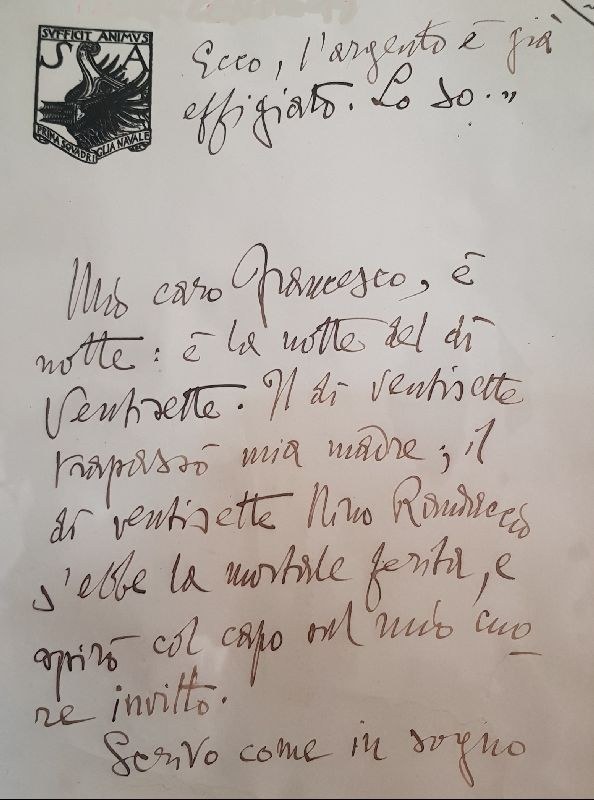 SVFFICIT ANIMVS
S A
PRIMA SQVADRIGLIA NAVALE
Ecco, l'argento è già
effigiato. Lo so.„
Mio caro Francesco, è
notte: è la notte del dì
Ventisette. Il dì ventisette
trapassò mia madre; il
dì ventisette Nino Randaccio
s'ebbe la mortale ferita, e
spirò col capo sul mio cuo
re invitto.
Scrivo come in sogno